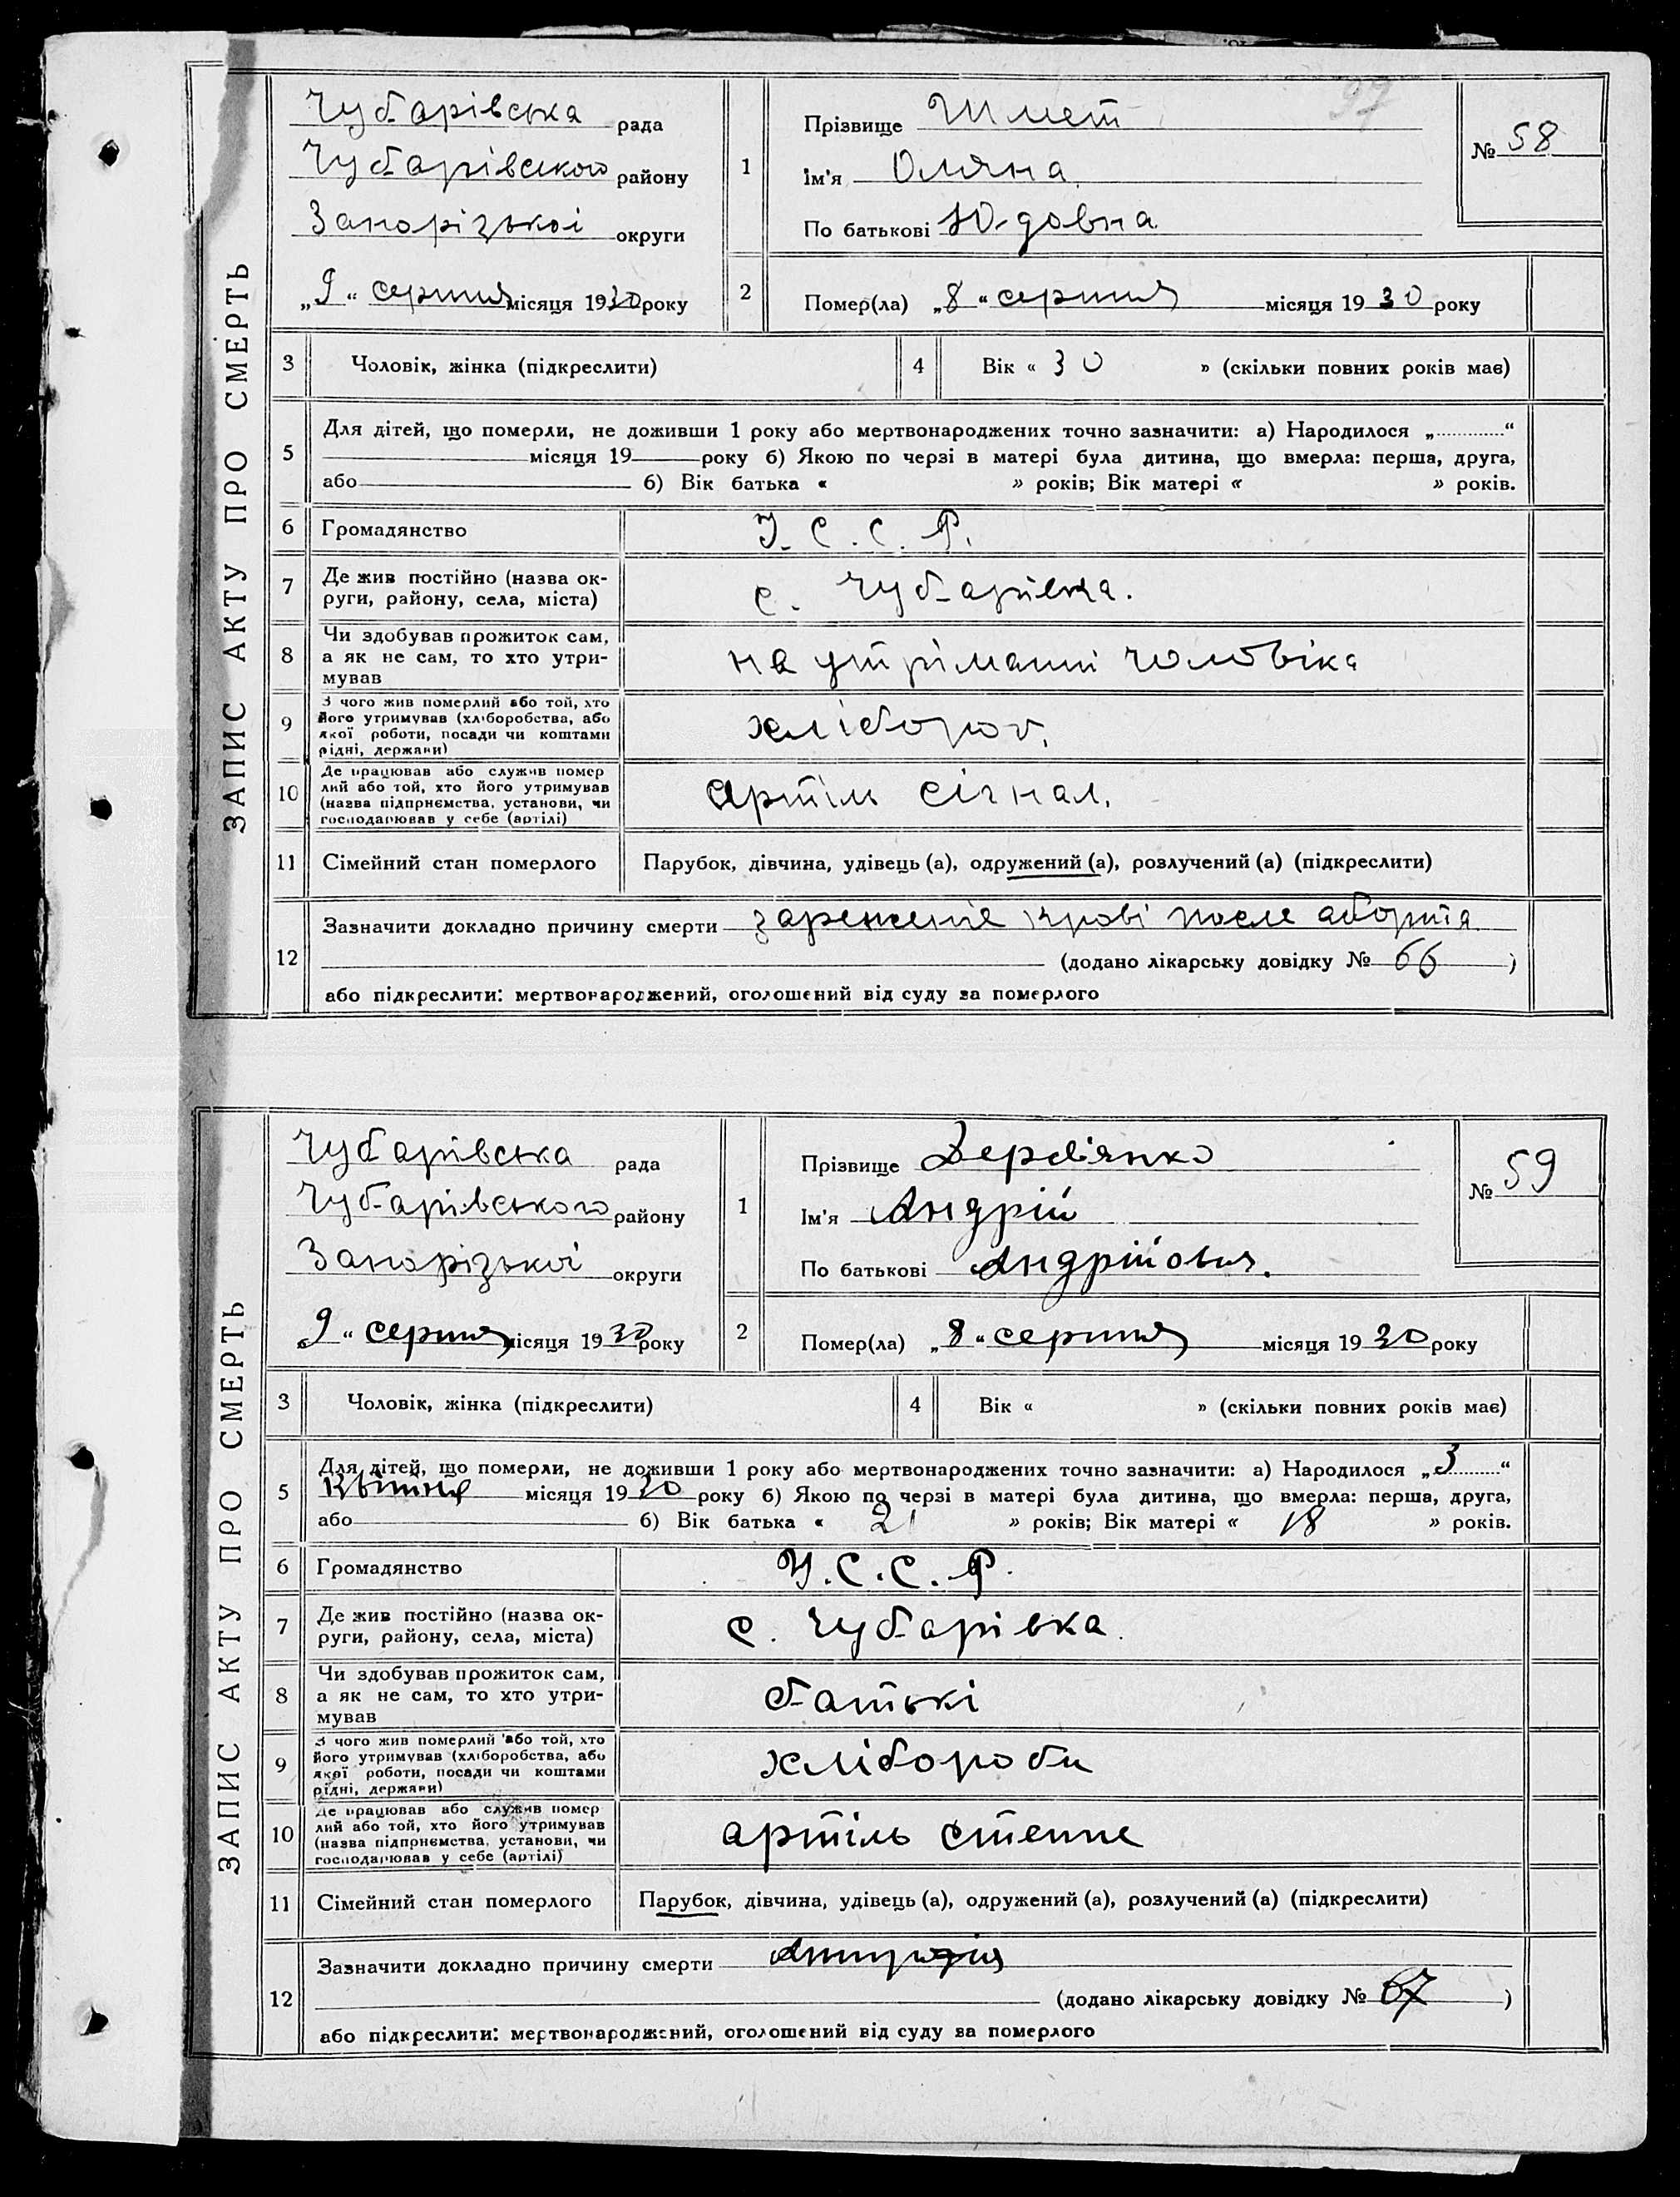 97
ЗАПИС АКТУ ПРО СМЕРТЬ
Чубарівська рада
Чубарівського району
Запорізької округи
„9“ серпня місяця 1930 року
1
Прізвище Шмет
Ім'я Оляна
По батькові Юдовна
№ 58
2
Помер(ла) „8“ серпня місяця 1930 року
3 Чоловік, жінка (підкреслити)
4 Вік « 30 » (скільки повних років має)
5
Для дітей, що померли, не доживши 1 року або мертвонароджених точно зазначити: а) Народилося „ “
місяця 19 року б) Якою по черзі в матері була дитина, що вмерла: перша, друга,
або б) Вік батька « » років; Вік матері « » років.
6 Громадянство У. С. С. Р.
7 Де жив постійно (назва ок-
руги, району, села, міста)
с. Чубарівка.
8 Чи здобував прожиток сам,
а як не сам, то хто утри-
мував
на утріманні чоловіка
9 З чого жив померлий або той, хто
його утримував (хліборобства, або
якої роботи, посади чи коштами
рідні, держави)
хлібороб.
10 Де працював або служив помер
лий або той, хто його утримував
(назва підприємства, установи, чи
господарював у себе (артілі)
Артіль сігнал.
11 Сімейний стан померлого Парубок, дівчина, удівець (а), одружений (а), розлучений (а) (підкреслити)
12
Зазначити докладно причину смерти зареженіе крові после аборта
(додано лікарську довідку № 66 )
або підкреслити: мертвонароджений, оголошений від суду за померлого
ЗАПИС АКТУ ПРО СМЕРТЬ
Чубарівська рада
Чубарівського району
Запорізької округи
„9“ серпня місяця 1930 року
1
Прізвище Дерев'янко
Ім'я Андрій
По батькові Андрійович.
№ 59
2
Помер(ла) „8“ серпня місяця 1930 року
3 Чоловік, жінка (підкреслити)
4 Вік « » (скільки повних років має)
5
Для дітей, що померли, не доживши 1 року або мертвонароджених точно зазначити: а) Народилося „3“
квітня місяця 1930 року б) Якою по черзі в матері була дитина, що вмерла: перша, друга,
або б) Вік батька « 21 » років; Вік матері « 18 » років.
6 Громадянство У. С. С. Р.
7 Де жив постійно (назва ок-
руги, району, села, міста)
с. Чубарівка.
8 Чи здобував прожиток сам,
а як не сам, то хто утри-
мував
батькі
9 З чого жив померлий або той, хто
його утримував (хліборобства, або
якої роботи, посади чи коштами
рідні, держави)
хлібороби
10 Де працював або служив помер
лий або той, хто його утримував
(назва підприємства, установи, чи
господарював у себе (артілі)
артіль
11 Сімейний стан померлого Парубок, дівчина, удівець (а), одружений (а), розлучений (а) (підкреслити)
12
Зазначити докладно причину смерти
(додано лікарську довідку № 67 )
або підкреслити: мертвонароджений, оголошений від суду за померлого